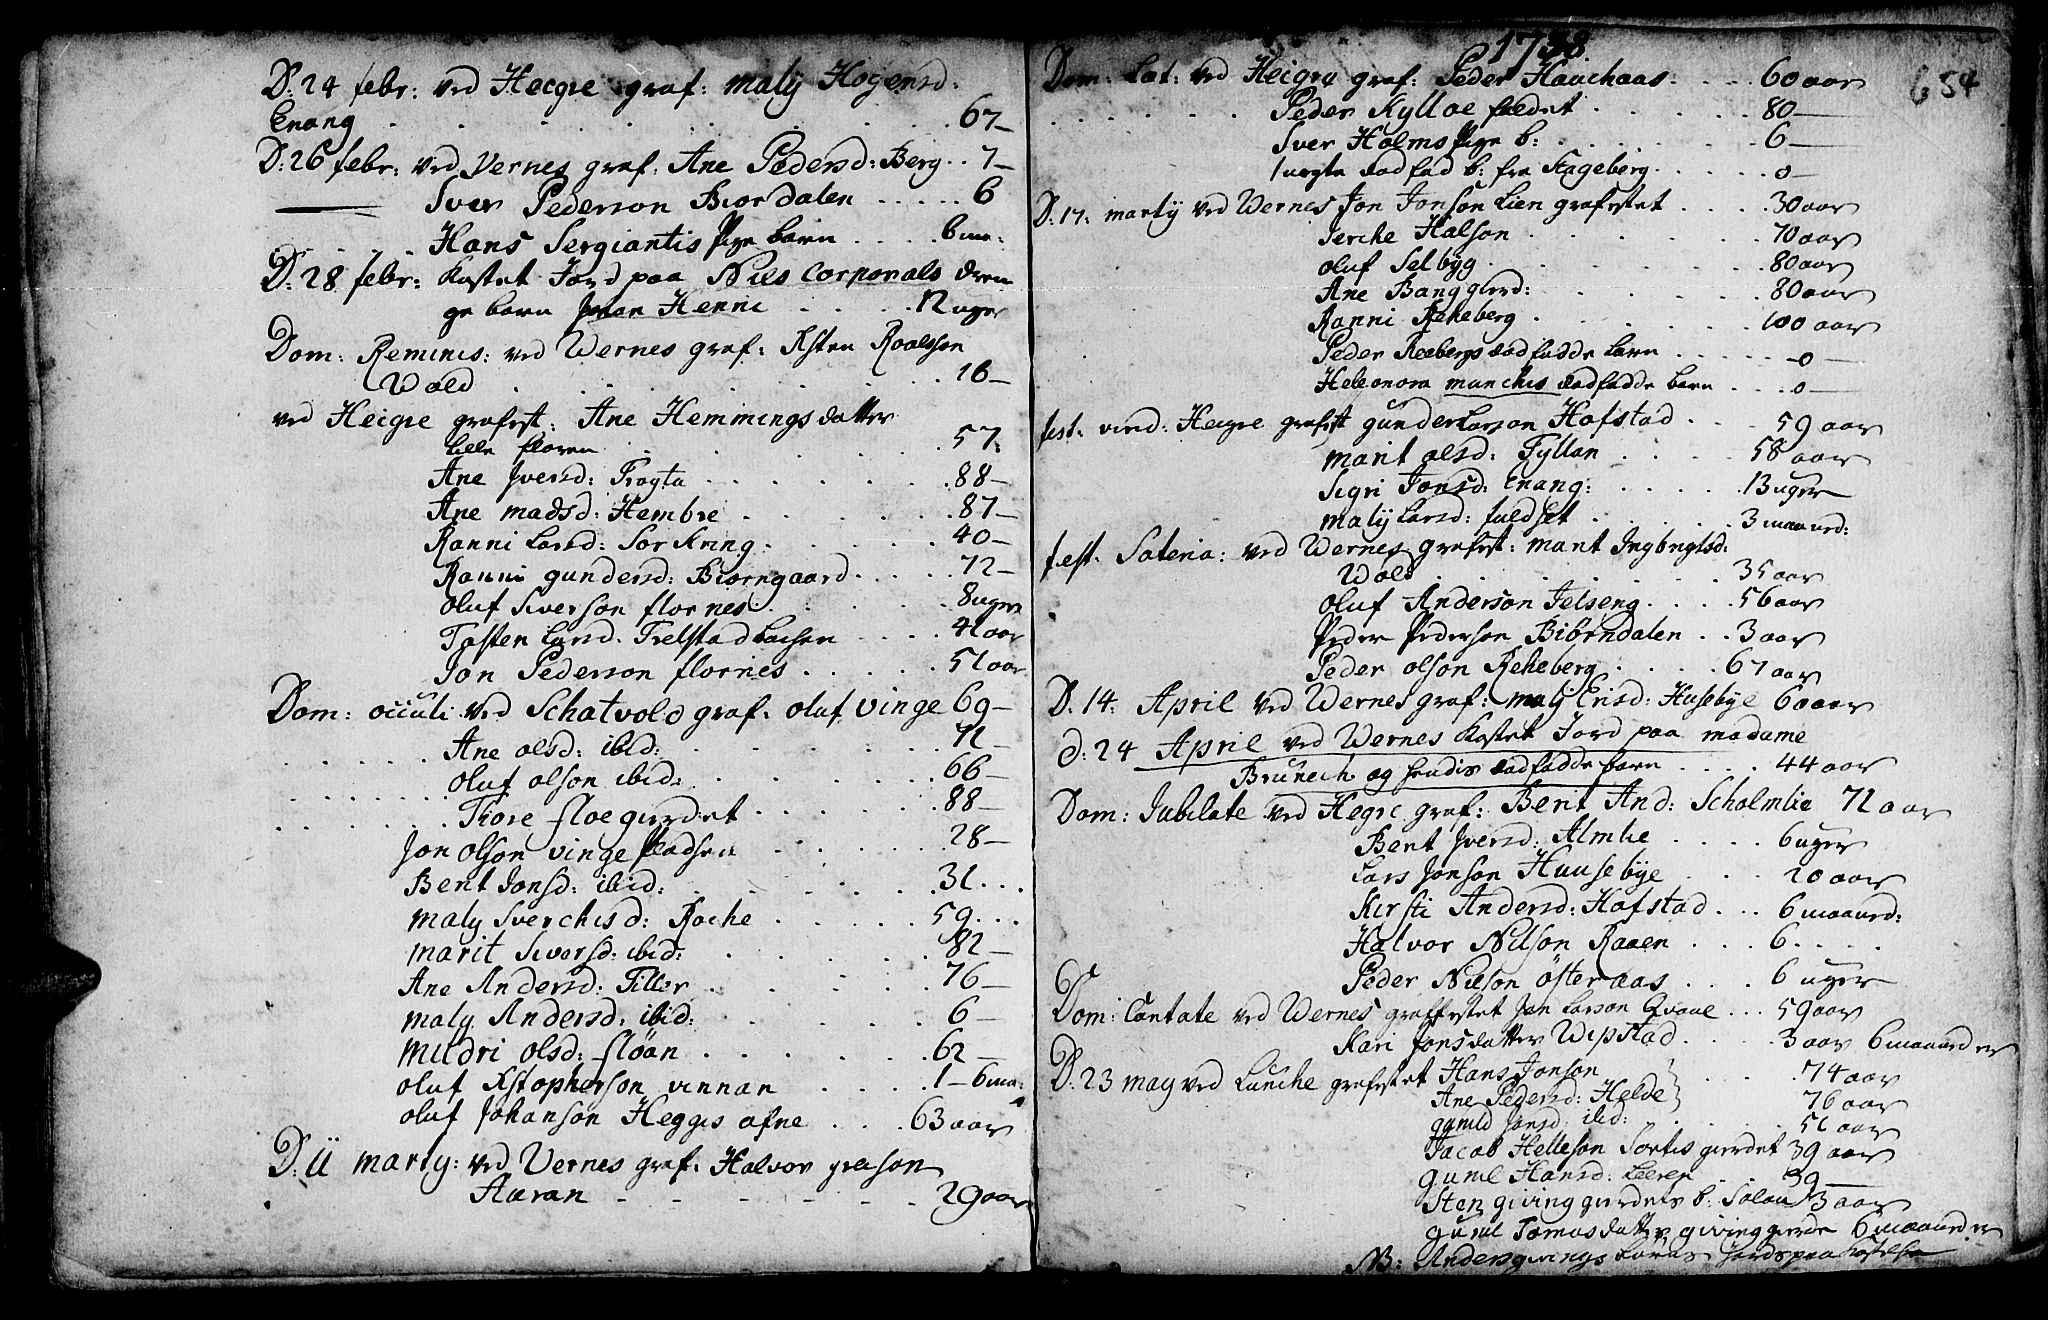 D: 24 febr: ved Hecgre graf: maly Hogensd:
Enang . . . . . . . . . . 67-
D: 26 febr: ved Vernes graf: Ane Pedersd: Berg . . 7-
Iver Pederson Biordalen . . . . . 6
Hans Sergiantis Pige barn . . . . 6 mo:
D: 28 febr: Kastet Jord paa Niels Corporals dren
ge barn Johan Henni . . . . . 12 uger
Dom: Reminis: ved Wernes graf: Asten Roalsson
Wold . . . . . . . . . 16-
ved Heigre grafest: Ane Hemmingsdatter
Lille floren . . . . . . 57:
Ane Iversd: Trogta . . . . . . . 88-
Ane madsd: Hembre . . . . . . 87-
Ranni Larsd: Sorkring . . . . . 40-
Ranni gundersd: Biorngaard . . . . . 72-
Oluf Siverson flornes . . . . . . 8 uger
Tosten Larsd: Trelstad Lachsen . . . . 41 aar
Jon Pederson flornes . . . . . 51 aar
Dom: occuli ved Schatvold graf: oluf vinge 69-
Ane olsd: ibid: . . . . . . . . 71-
oluf olson ibid: . . . . . . . 66-
Thore floegierdet . . . . . . 88-
Jon olson vinge pladsen . . . . . . 28-
Berit Jonsd: ibid: . . . . . . . 31 . . .
maly Sverchisd: Roche . . . . . 59 . . .
marit Siversd: ibid: . . . . . . 82-
Ane Andersd: Tiller . . . . . . 76-
maly Andersd: ibid: . . . . . . 6-
Mildri olsd: fløan . . . . . . 62-
oluf Kstopherson vinnan . . . . . 1-6 mo:
oluf Johanson Hegges afne . . . 63 aar
D: 11 marty: ved Vernes graf: Halvor
Auran - - - - - - - 29 aar
1738
Dom: Læt: ved Heigre graf: Peder Haachaas . . . . 60 aar 654
Peder Kylloe fædet . . . . . . 80-
Iver Holms Pige b: . . . . . . . 6-
1 uegte dødfød b: fra Stageberg . . . . . 0-
D: 17: marty ved Wernes Jon Jonson Lien grafestet . . . . 30 aar
Jerche Halson . . . . . . 70 aar
oluf Selbyg . . . . . . . 80 aar
Ane Banggierd: . . . . . . 80 aar
Ranni Reheberg . . . . . . 100 aar
Peder Reebergs dødfødde barn . . . . . . 0-
Heleonora munchis dødfødde barn . . . 0-
fest: vird: Hegre grafest gunder Larson Hofstad . . . . 59 aar
marit olsd: Fyllan . . . . . 58 aar
Sigri Jonsd: Enang: . . . . . 13 uger
maly Larsd: fuldset . . . . . . 3 maaned:
fest: Soteria: ved Wernes grafest: marit Ingbrigtsd:
Wold . . . . . . . . . . 35 aar
oluf Anderson Jelseng . . . . 56 aar
Peder Pederson Biörndalen . . 3 aar
Peder olson Reheberg . . . . . 67 aar
D: 14: April ved Wernes graf: maly Erisd: Husebye 60 aar
d: 24 April ved Wernes Kastet Jord paa madame
Brunech og hendis dødfødde barn . . . . 44 aar
Dom: Jubilate ved Hegre graf: Berit And: Scholmlie 71 aar
Berit Iversd: Almlie . . . . 6 uger
Lars Jonson Huusebye . . . . 20 aar
Kirsti Andersd: Hofstad . . . 6 maaned:
Halvor Nilson Raaen . . . 6 . . . .
Peder Nilson österaas . . . . 6 uger
Dom: Cantate ved Wernes graffestet Jon Larson Qvaal . . . 59 aar
Kari Jonsdatter Wipstad . . . . 3 aar 6 maaneder
D: 23 may ved Lånche grafestet Hans Jonson . . . . 74 aar
Ane Pedersd: Helde 76 aar
gunild Jonsd: ibid: . . . . . 51 aar
Jacob Helleson Sortis gierdet 39 aar
Gunil Hansd: Leeren . . . 39-
Sten giving gierdets b: Salau 3 aar
Gunil Tomasdatter giving gierde 6 maaneder
NB: Anders givings Jord paa Kastelse